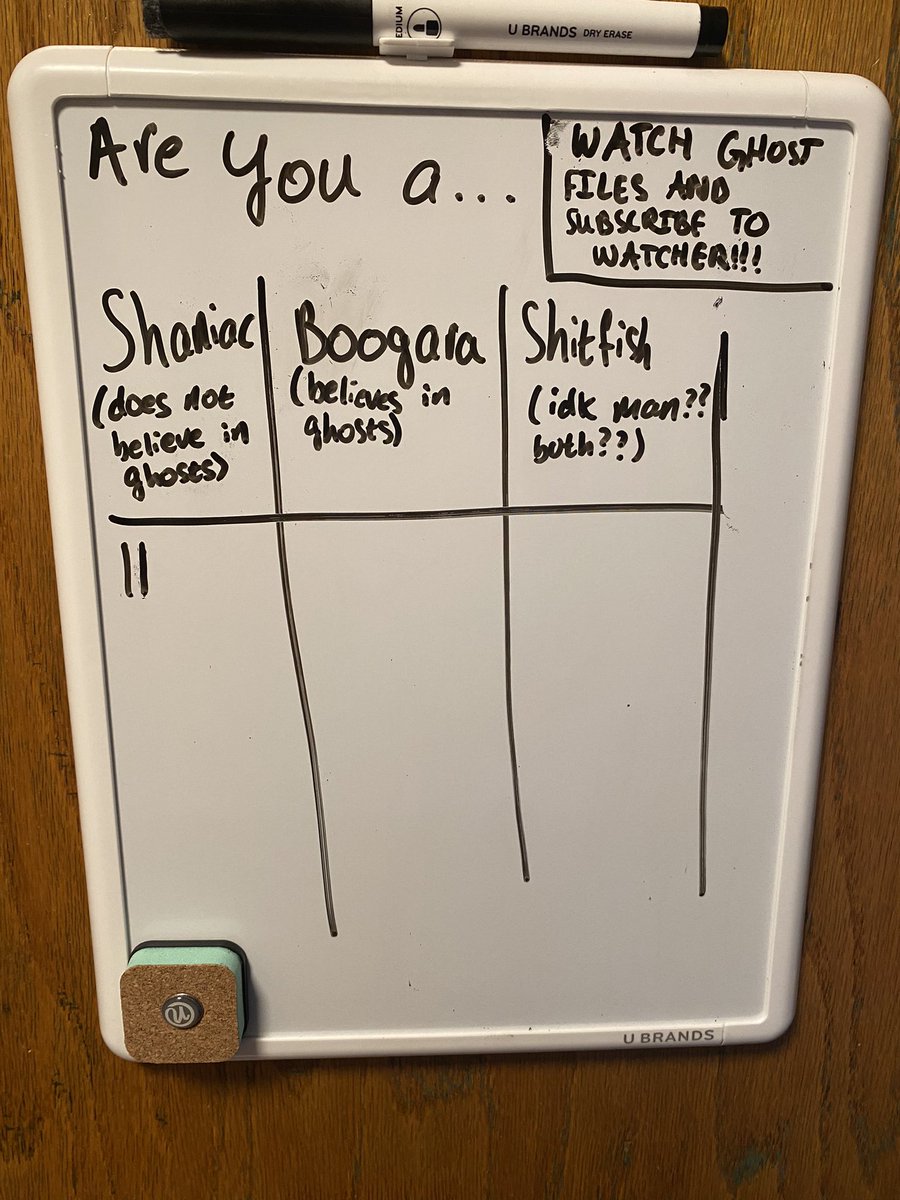 EDIUM
U BRANDS DRY ERASE
Are you a...
WATCH GHOST
FILES AND
SUBSCRIBE TO
WATCHER!!!
Shaniac
(does not
believe in
ghosts)
Boogara
(believes in
ghosts)
Shitfish
(idk man??
both??)
U BRANDS